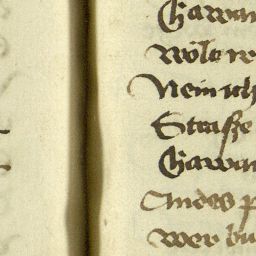 Gawan
wolt re
Nein ich
Strasze
Gawan
Andes p
wer bu